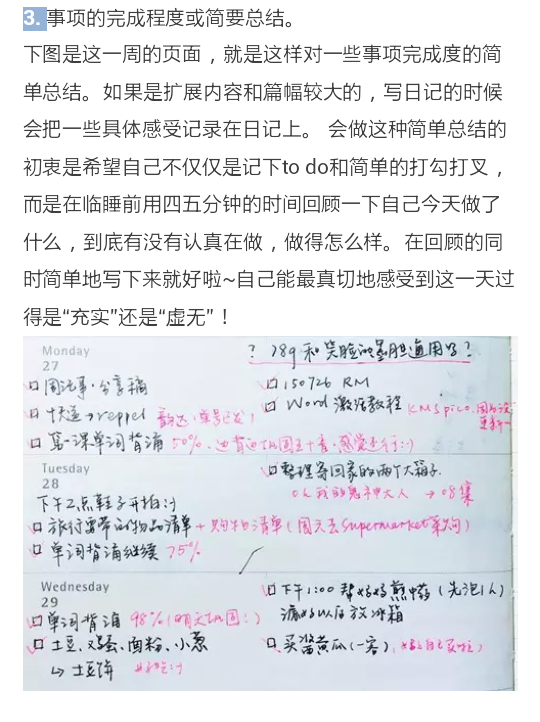 3. 事项的完成程度或简要总结。
下图是这一周的页面，就是这样对一些事项完成度的简
单总结。如果是扩展内容和篇幅较大的，写日记的时候
会把一些具体感受记录在日记上。 会做这种简单总结的
初衷是希望自己不仅仅是记下to do和简单的打勾打叉，
而是在临睡前用四五分钟的时间回顾一下自己今天做了
什么，到底有没有认真在做，做得怎么样。在回顾的同
时简单地写下来就好啦~自己能最真切地感受到这一天过
得是“充实”还是“虚无”！
Monday
27
? 789和笑脸的墨胆通用吗?
周记事·分享稿
150726 RM
快递→
Word 激活教程 KMSpico
第一课单词背诵 50%
感觉还行:)
Tuesday
28
整理寄回家的两个大箱子
→ 08集
下午2点鞋子开拍:)
旅行要带的物品清单 + 购物清单(周六去Supermarket
单词背诵继续 75%
Wednesday
29
下午1:00 帮妈妈煎中药 (先泡1h)
滤好以后放冰箱
单词背诵 98% (明天巩固:)
土豆、鸡蛋、面粉、小葱
↳ 土豆饼
买酱黄瓜(一客)